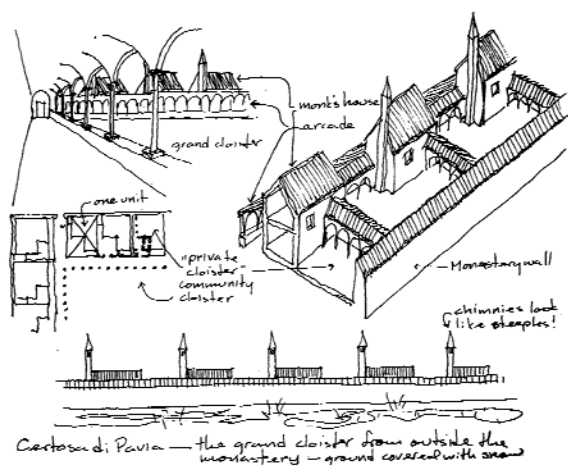 monk's house
arcade
grand cloister
one unit
"private
cloister"
community
cloister
Monastery wall
chimnies look
like steeples!
Certosa di Pavia — the grand cloister from outside the
monastery — ground covered with snow